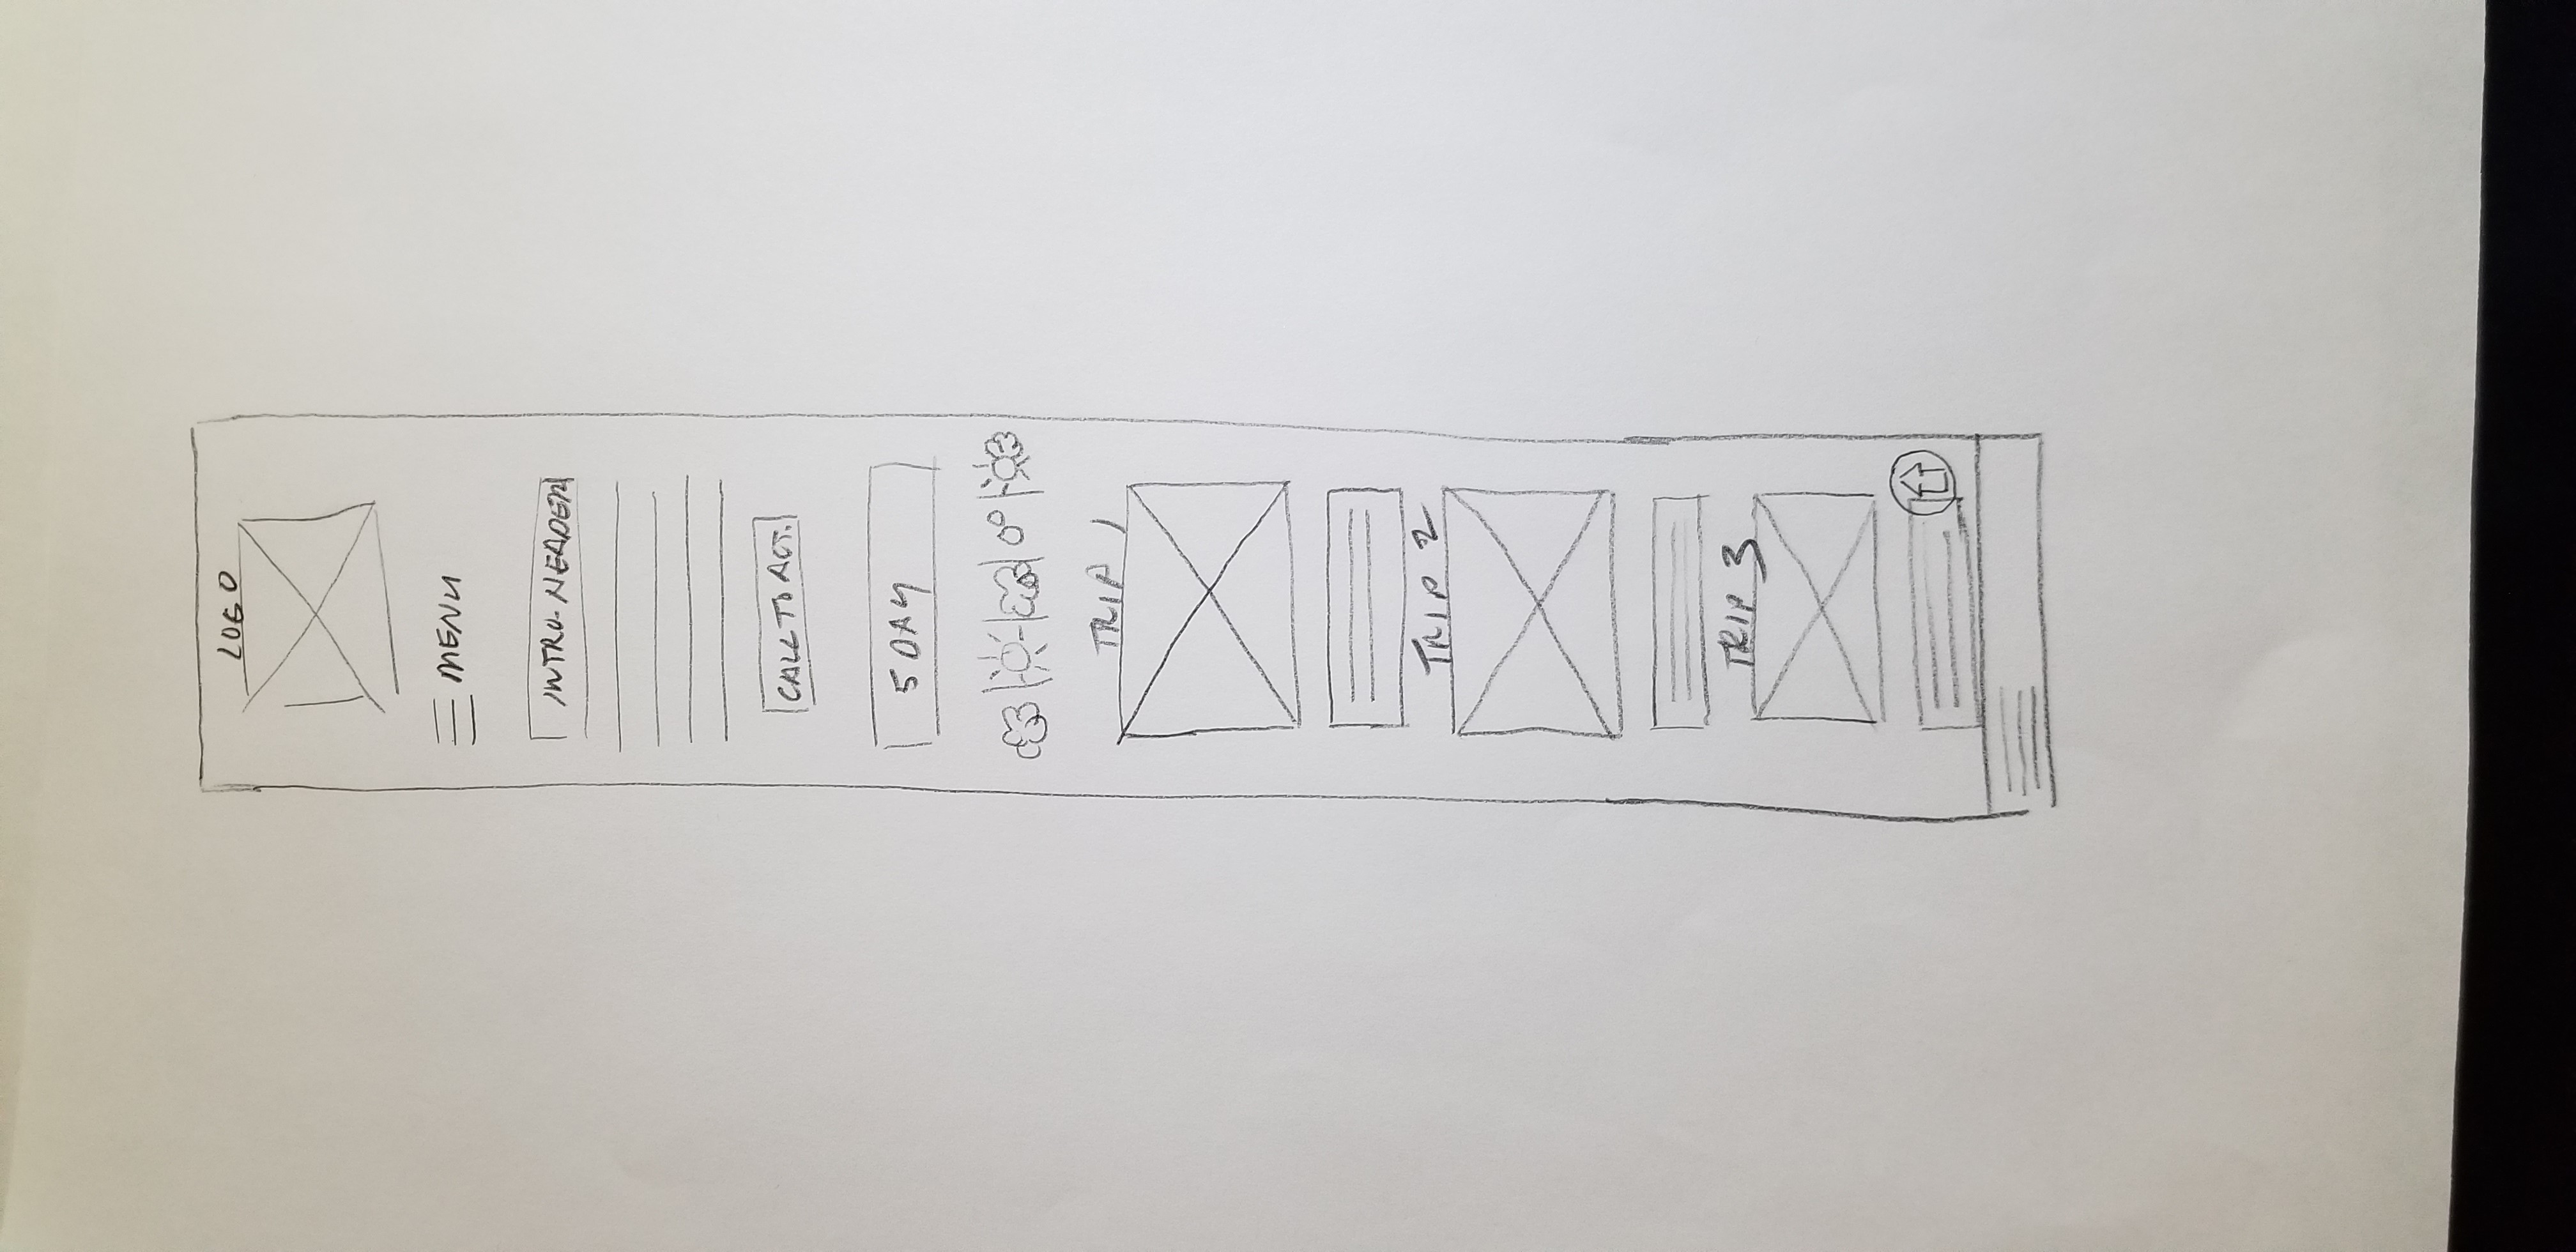 LOGO
MENU
INTRO-HEADER
CALL TO ACT.
5 DAY
TRIP 1
TRIP 2
TRIP 3